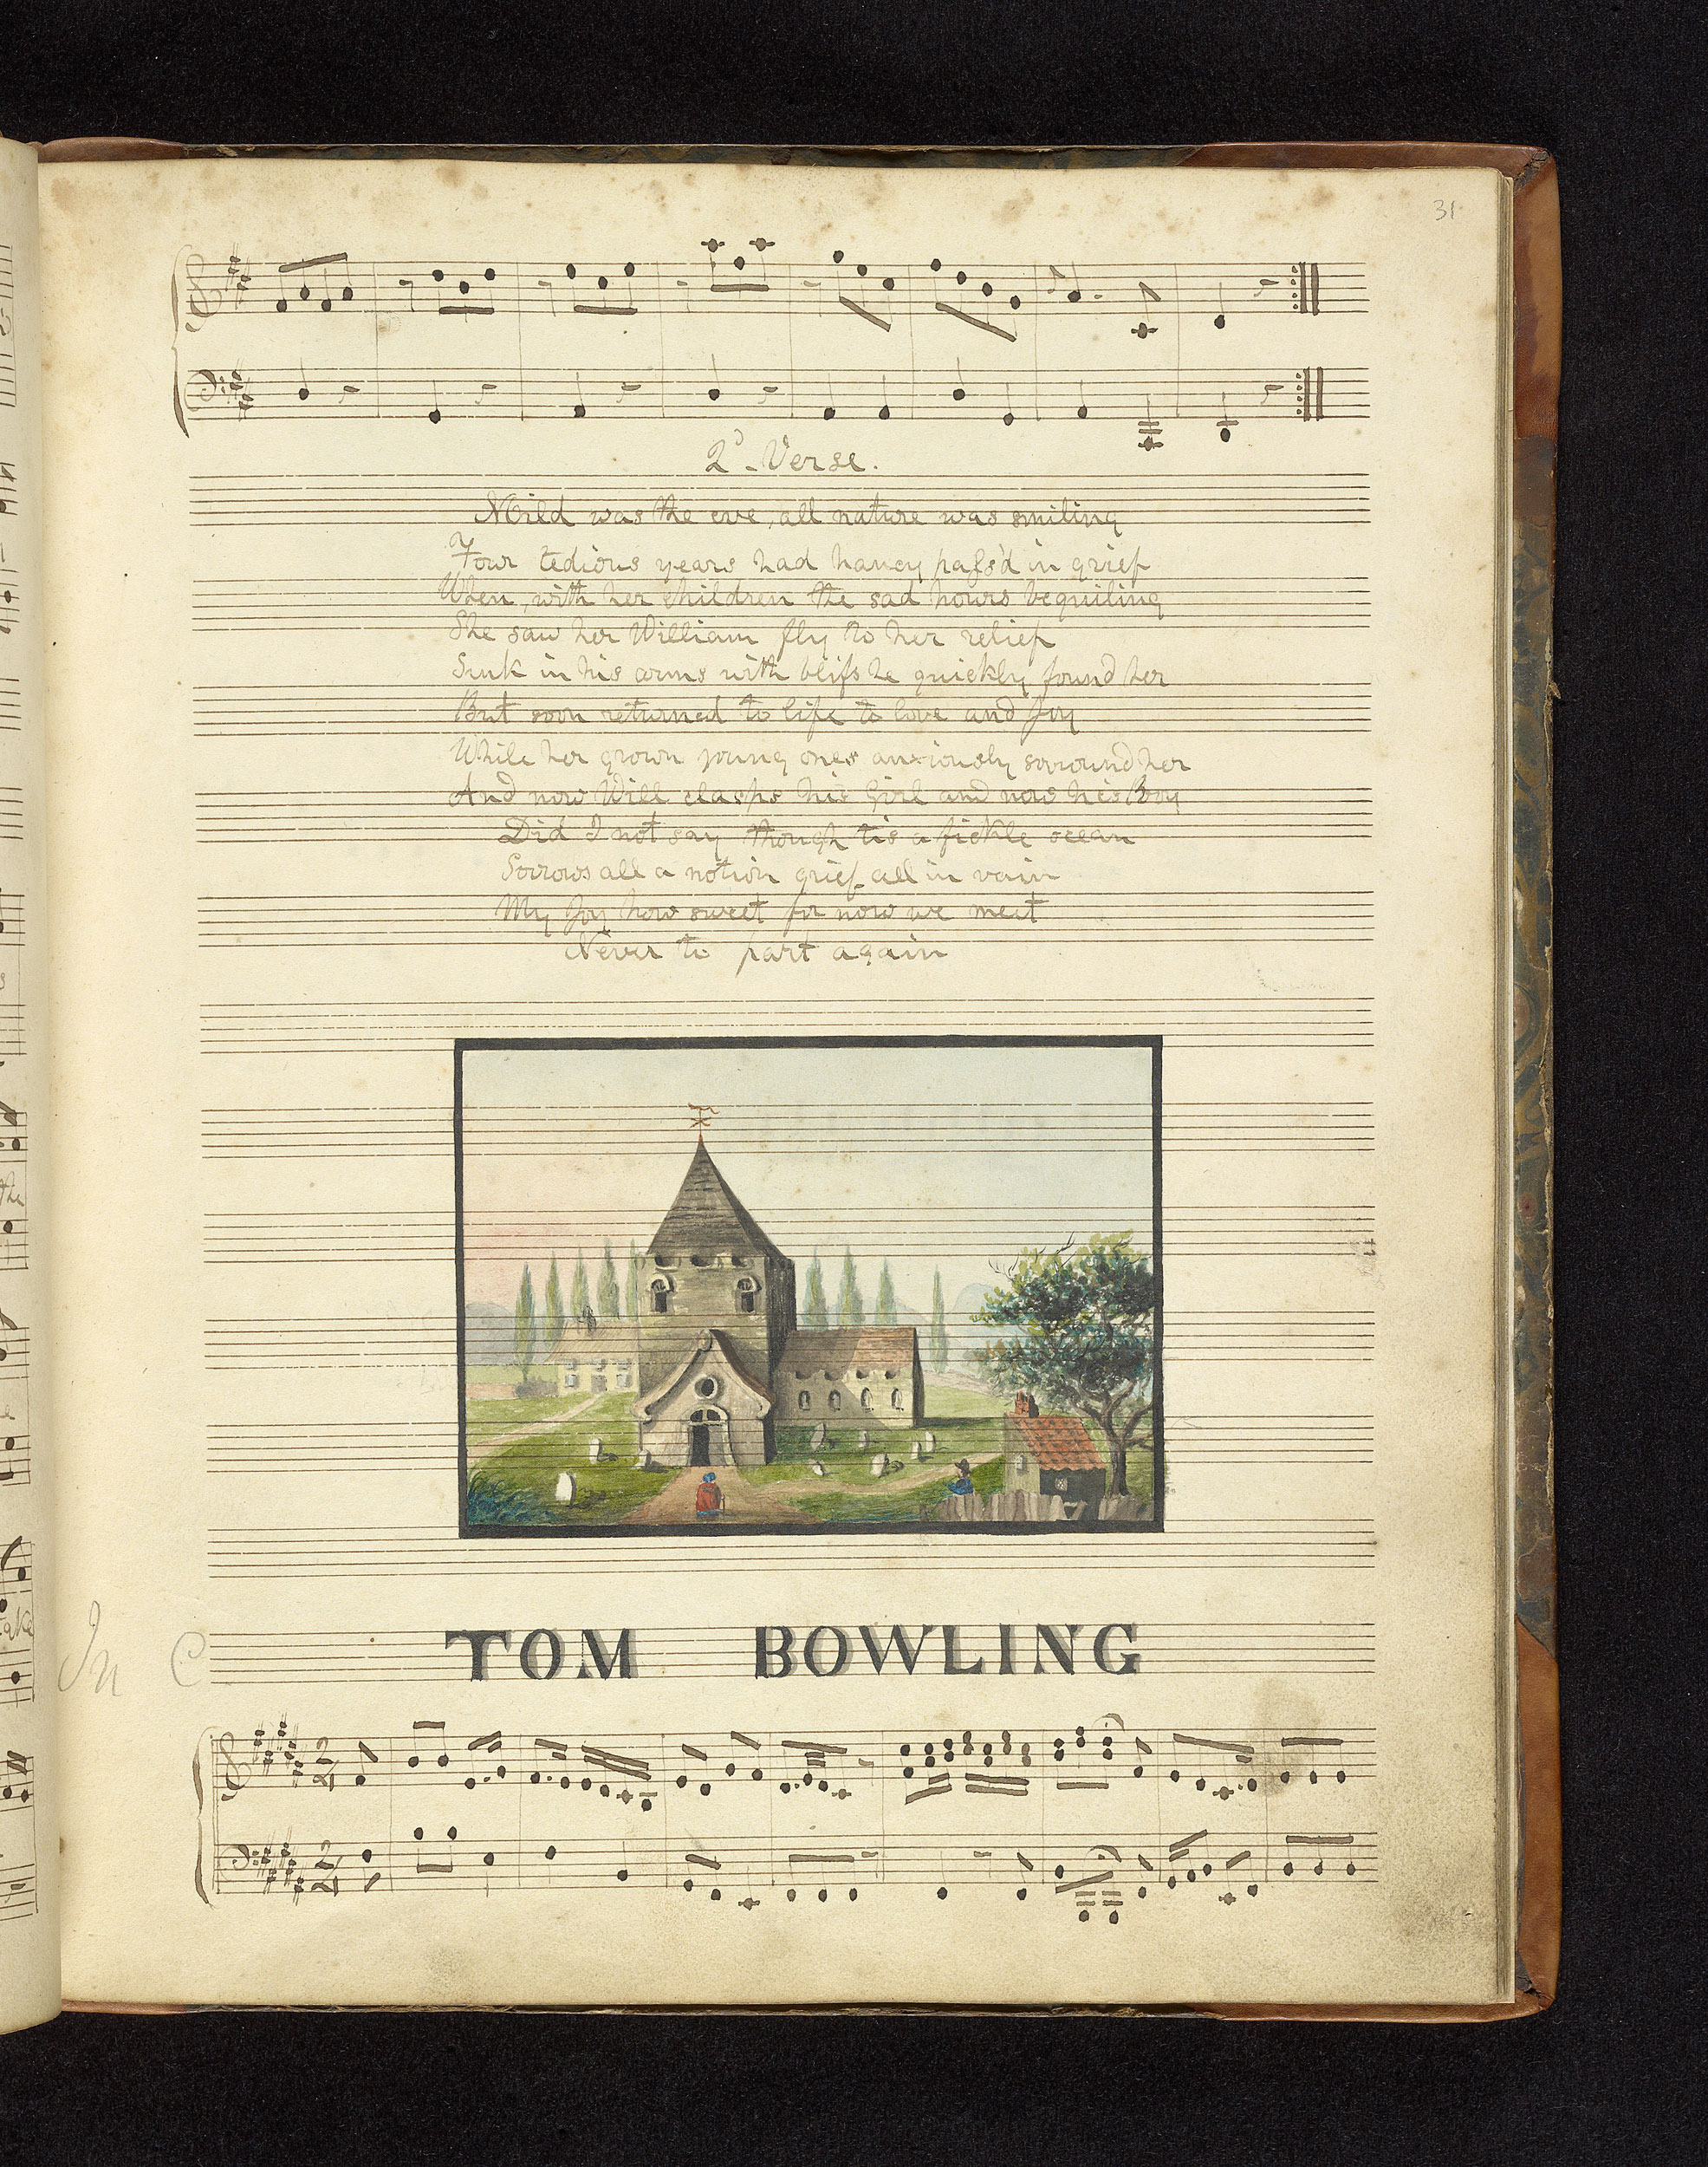 31
2d. Verse.
Mild was the eve, all nature was smiling
Four tedious years had nancy paſs'd in grief
When, with her children the sad hours beguiling
She saw her William fly to her relief
Sunk in his arms with bliſs he quickly found her
But soon returned to life to love and Joy
While her grown young ones anxiously sorround her
And now Will clasps his Girl and now his Boy
Did I not say though tis a fickle ocean
Sorrows all a notion grief all in vain
My Joy how sweet for now we meet
Never to part again
In C
TOM BOWLING
2
4
2
4
the
take